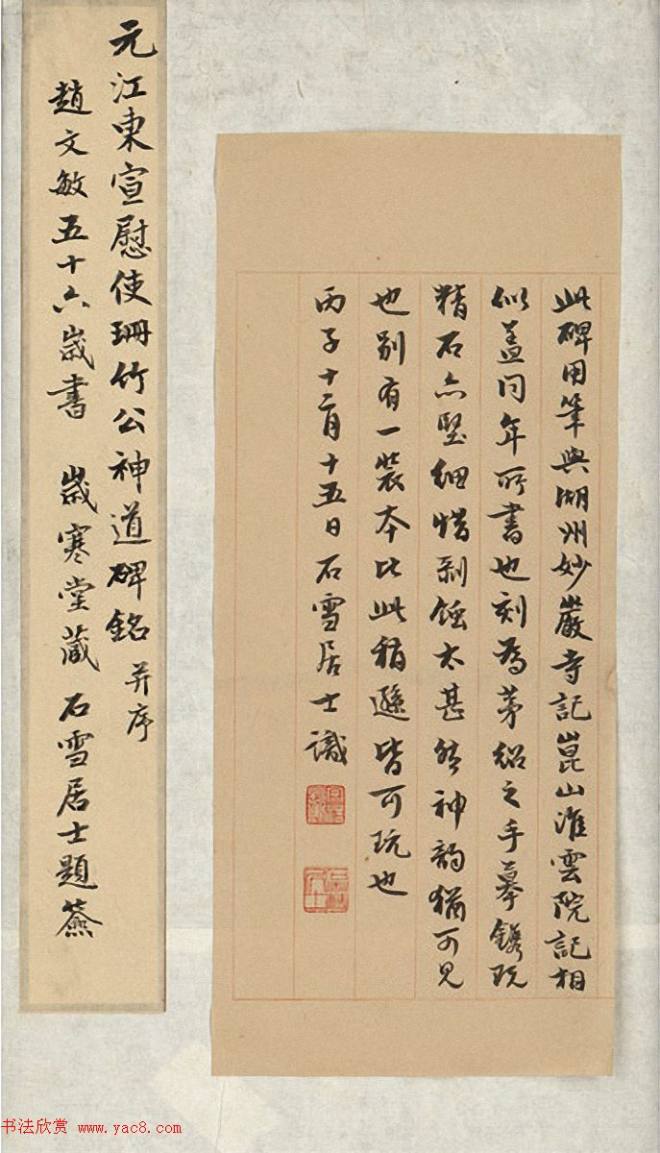 此碑用筆與湖州妙巖寺記崑山淮雲院記相
似蓋同年所書也刻為茅紹之手摹鐫既
精石亦堅細惜剥蝕太甚然神韵猶可見
也別有一裝本比此稍遜皆可玩也
丙子十二月十五日石雪居士識
元江東宣慰使珊竹公神道碑銘并序
趙文敏五十六歲書 歲寒堂藏 石雪居士題簽
书法欣赏 www.yac8.com